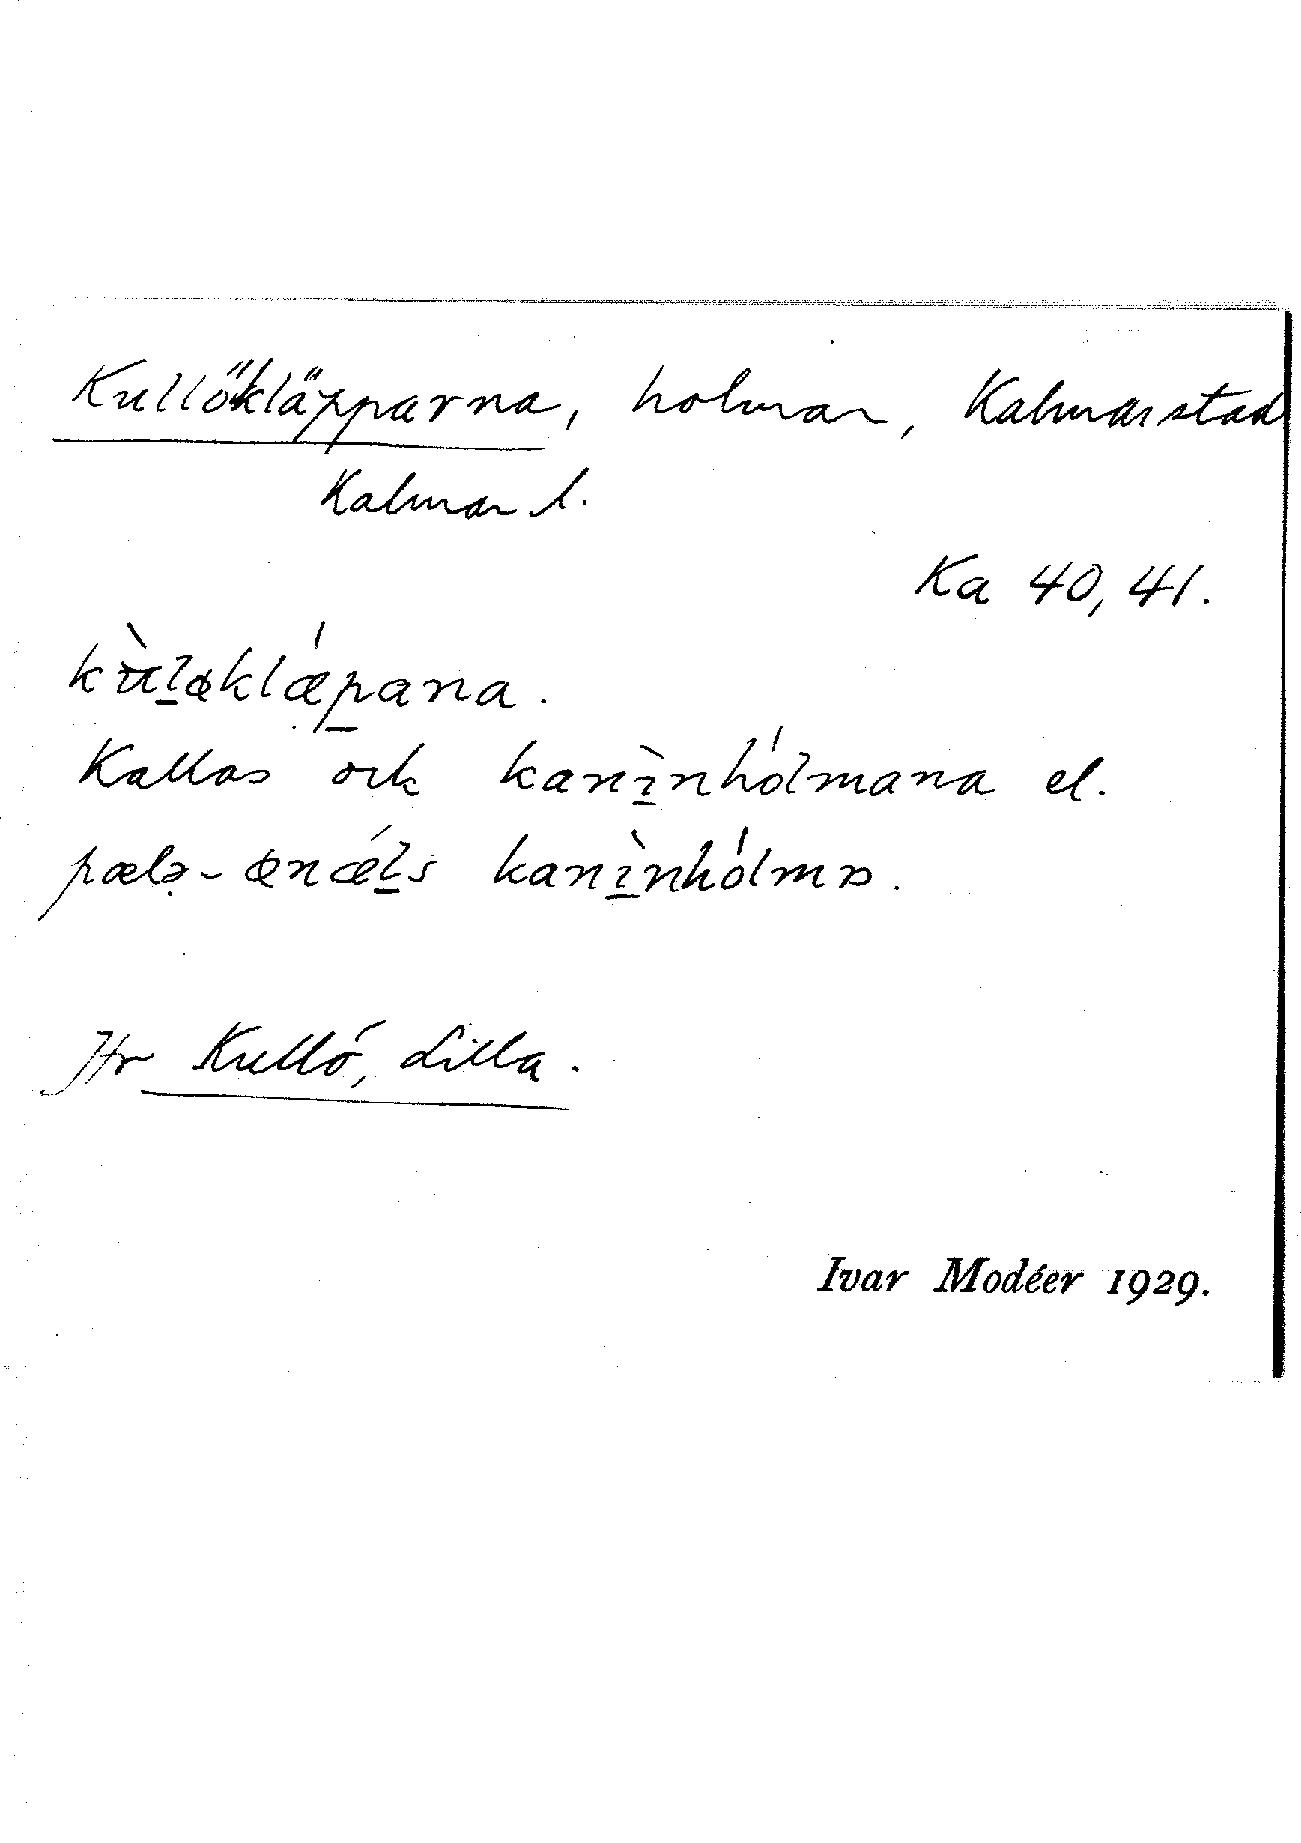 Kullökläpparna, holmar, Kalmar stad
Kalmar l.
Ka 40, 41.
kùl̲øklǽp̲ana.
Kallas ock kanì̲nhólmana el.
pælə-ænǽl̲s kanì̲nhólma.
Jfr Kullö, Lilla.
Ivar Modéer 1929.